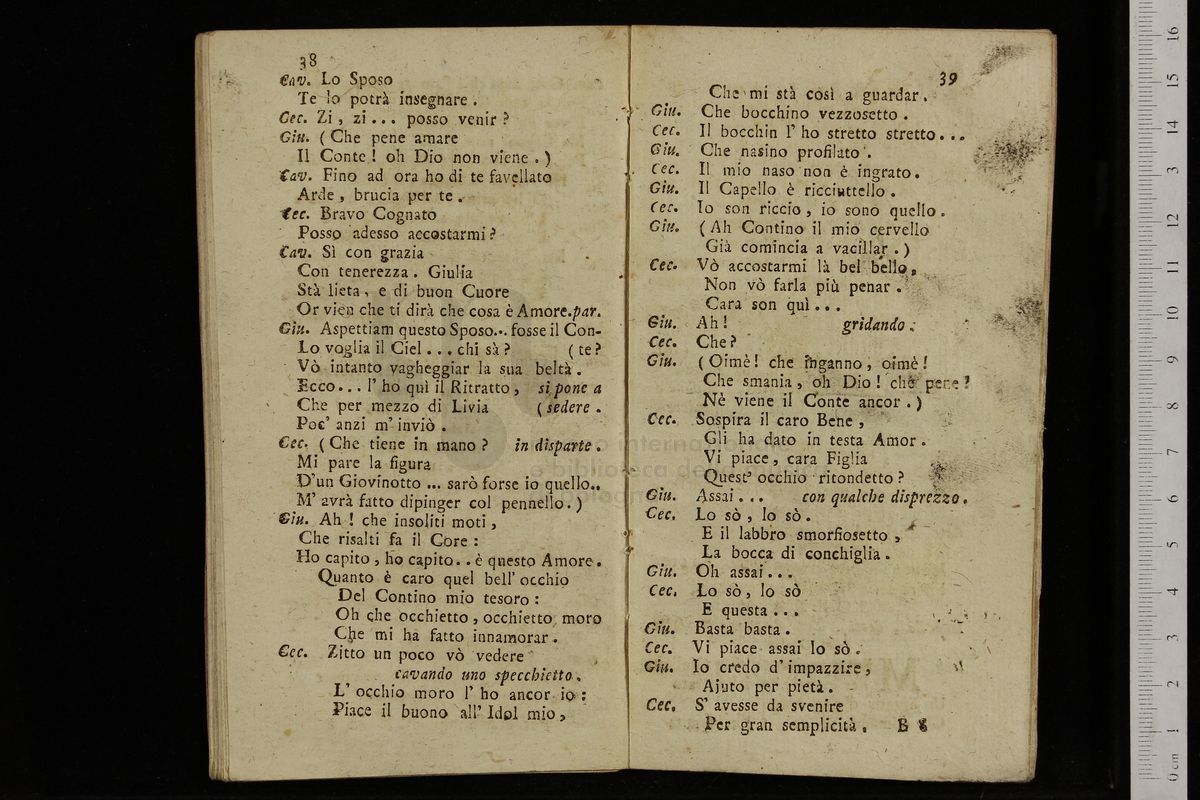 38
Cav. Lo Sposo
Te lo potrà insegnare.
Cec. Zi, zi... posso venir?
Giu. (Che pene amare
Il Conte! oh Dio non viene.)
Cav. Fino ad ora ho di te favellato
Arde, brucia per te.
Cec. Bravo Cognato
Posso adesso accostarmi?
Cav. Sì con grazia
Con tenerezza. Giulia
Stà lieta, e di buon Cuore
Or vien che ti dirà che cosa è Amore. par.
Giu. Aspettiam questo Sposo... fosse il Con-
Lo voglia il Ciel... chi sà? (te?
Vò intanto vagheggiar la sua beltà.
Ecco... l' ho quì il Ritratto, si pone a
Che per mezzo di Livia (sedere.
Poc' anzi m' inviò.
Cec. (Che tiene in mano? in disparte.
Mi pare la figura
D'un Giovinotto ... sarò forse io quello..
M' avrà fatto dipinger col pennello.)
Giu. Ah! che insoliti moti,
Che risalti fa il Core:
Ho capito, ho capito.. è questo Amore.
Quanto è caro quel bell' occhio
Del Contino mio tesoro:
Oh che occhietto, occhietto moro
Che mi ha fatto innamorar.
Cec. Zitto un poco vò vedere
cavando uno specchietto.
L' occhio moro l' ho ancor io:
Piace il buono all' Idol mio,
39
Che mi stà così a guardar.
Giu. Che bocchino vezzosetto.
Cec. Il bocchin l' ho stretto stretto...
Giu. Che nasino profilato.
Cec. Il mio naso non è ingrato.
Giu. Il Capello è ricciuttello.
Cec. Io son riccio, io sono quello.
Giu. (Ah Contino il mio cervello
Già comincia a vacillar.)
Cec. Vò accostarmi là bel bello,
Non vò farla più penar.
Cara son quì...
Giu. Ah! gridando.
Cec. Che?
Giu. (Oimè! che inganno, oimè!
Che smania, oh Dio! che pene!
Nè viene il Conte ancor.)
Cec. Sospira il caro Bene,
Gli ha dato in testa Amor.
Vi piace, cara Figlia
Quest' occhio ritondetto?
Giu. Assai... con qualche disprezzo.
Cec. Lo sò, lo sò.
E il labbro smorfiosetto,
La bocca di conchiglia.
Giu. Oh assai...
Cec. Lo sò, lo sò
E questa...
Giu. Basta basta.
Cec. Vi piace assai lo sò.
Giu. Io credo d' impazzire,
Ajuto per pietà.
Cec. S' avesse da svenire
Per gran semplicità. B